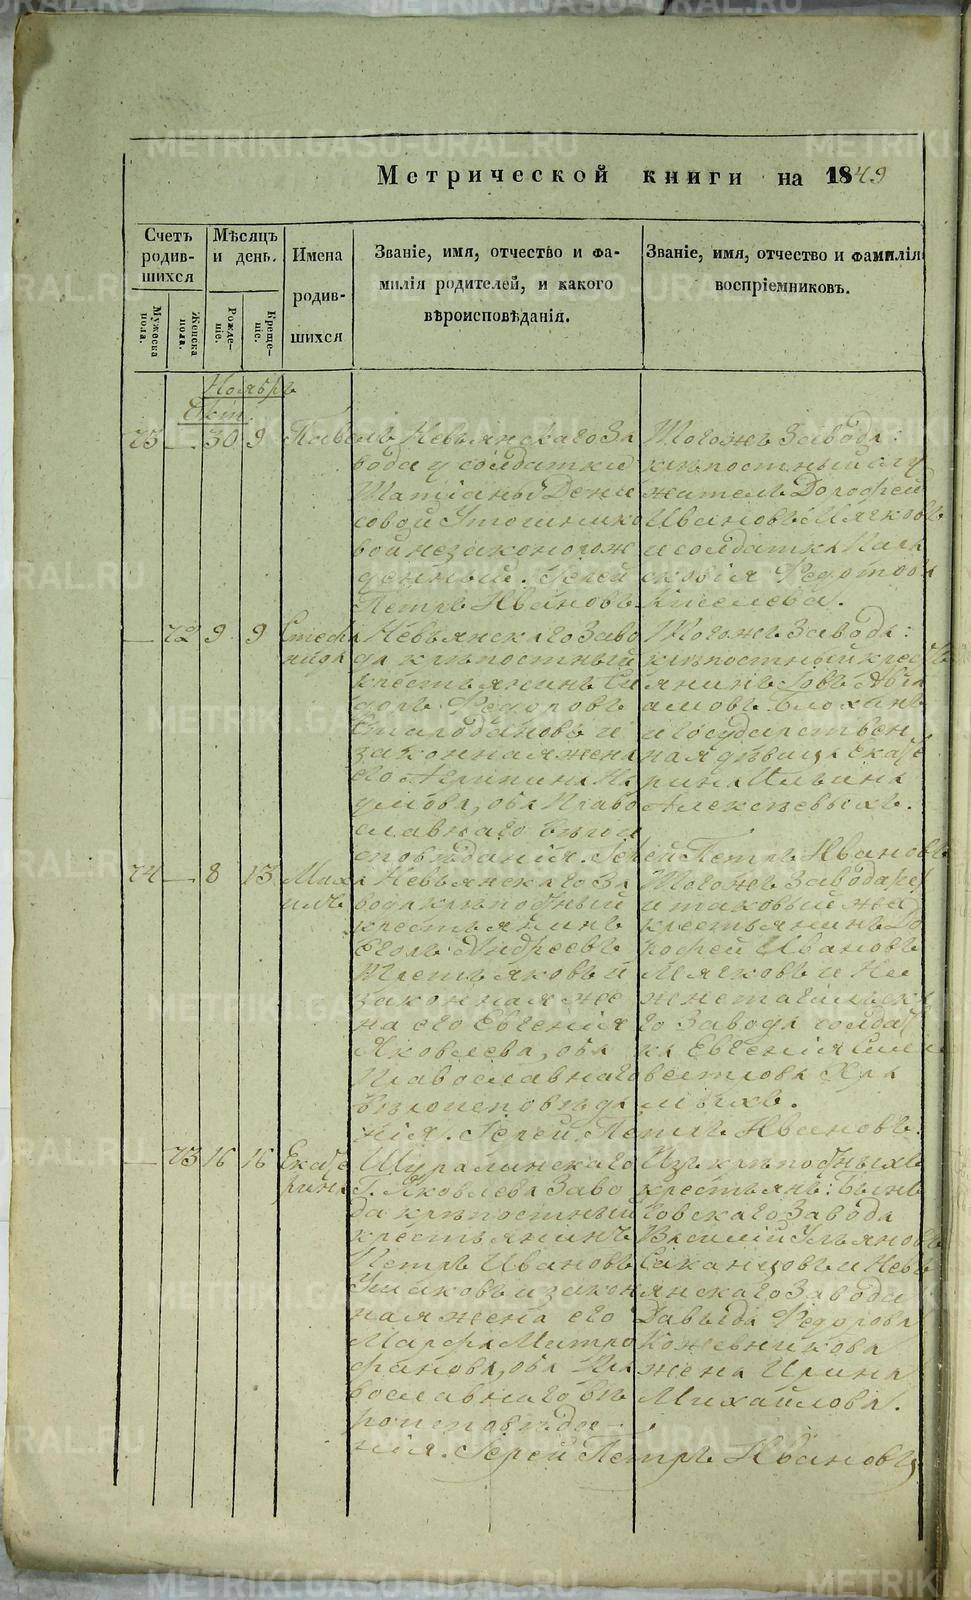 Метрической книги на 1849
Счетъ родившихся
Мѣсяцъ и день.
Имена родившихся
Званіе, имя, отчество и фамилія родителей, и какого вѣроисповѣданія.
Званіе, имя, отчество и фамилія воспріемниковъ.
Мужеска пола.
Женска пола.
Рожденіе.
Крещеніе.
Ноябрь
Окт.
73 — 30 9 Павелъ
Невьянскаго За
вода у солдатки
Татіаны Дени
совой
вой незаконорож
денный. Іерей
Петръ Ивановъ
Тогожъ Завода:
крѣпостный слу
житель Дорофей
Ивановъ Мягковъ
и солдатка Пара
сковія Федотова
Киселева.
— 72 9 9 Стефа
нида
Невьянскаго Заво
да крѣпостный
крестьянинъ Си
доръ Федоровъ
и
законная жена
его Агрипина На
умова, оба Право
славнаго вѣрои
сповѣданія. Іерей Петръ Ивановъ
Тогожъ Завода:
крѣпостный кресть
янинъ Іовъ Авра
амовъ Блохинъ
и государствен
ная дѣвица Екате
рина Ильина
Алексѣевыхъ.
74 — 8 13 Миха
илъ
Невьянскаго За
вода крѣпостный
крестьянинъ
Егоръ Андреевъ
Третьяковъ и
законная же
на его Евгенія
Яковлева, оба
Православнаго
вѣроисповѣда
нія. Іерей Петръ Ивановъ.
Тогожъ Завода
и таковый же
крестьянинъ До
рофей Ивановъ
Мягковъ и Ни
жнетагильска
го Завода солдат
ка Евгенія Сили
вестрова Хра
мыхъ.
— 73 16 16 Екате
рина
Шуралинскаго
Г. Яковлева Заво
да крѣпостный
крестьянинъ
Петръ Ивановъ
Ушаковъ и закон
ная жена его
Марфа Митро
фанова, оба Пра
вославнаго вѣ
роисповѣда
нія. Іерей Петръ Ивановъ
Изъ крѣпостныхъ
крестьянъ: Бынь
говскаго Завода
Василій Ульяновъ
и Невь
янскаго Завода
Давыда Федорова
Кожевникова
жена Ирина
Михайлова.
METRIKI.GASO-URAL.RU